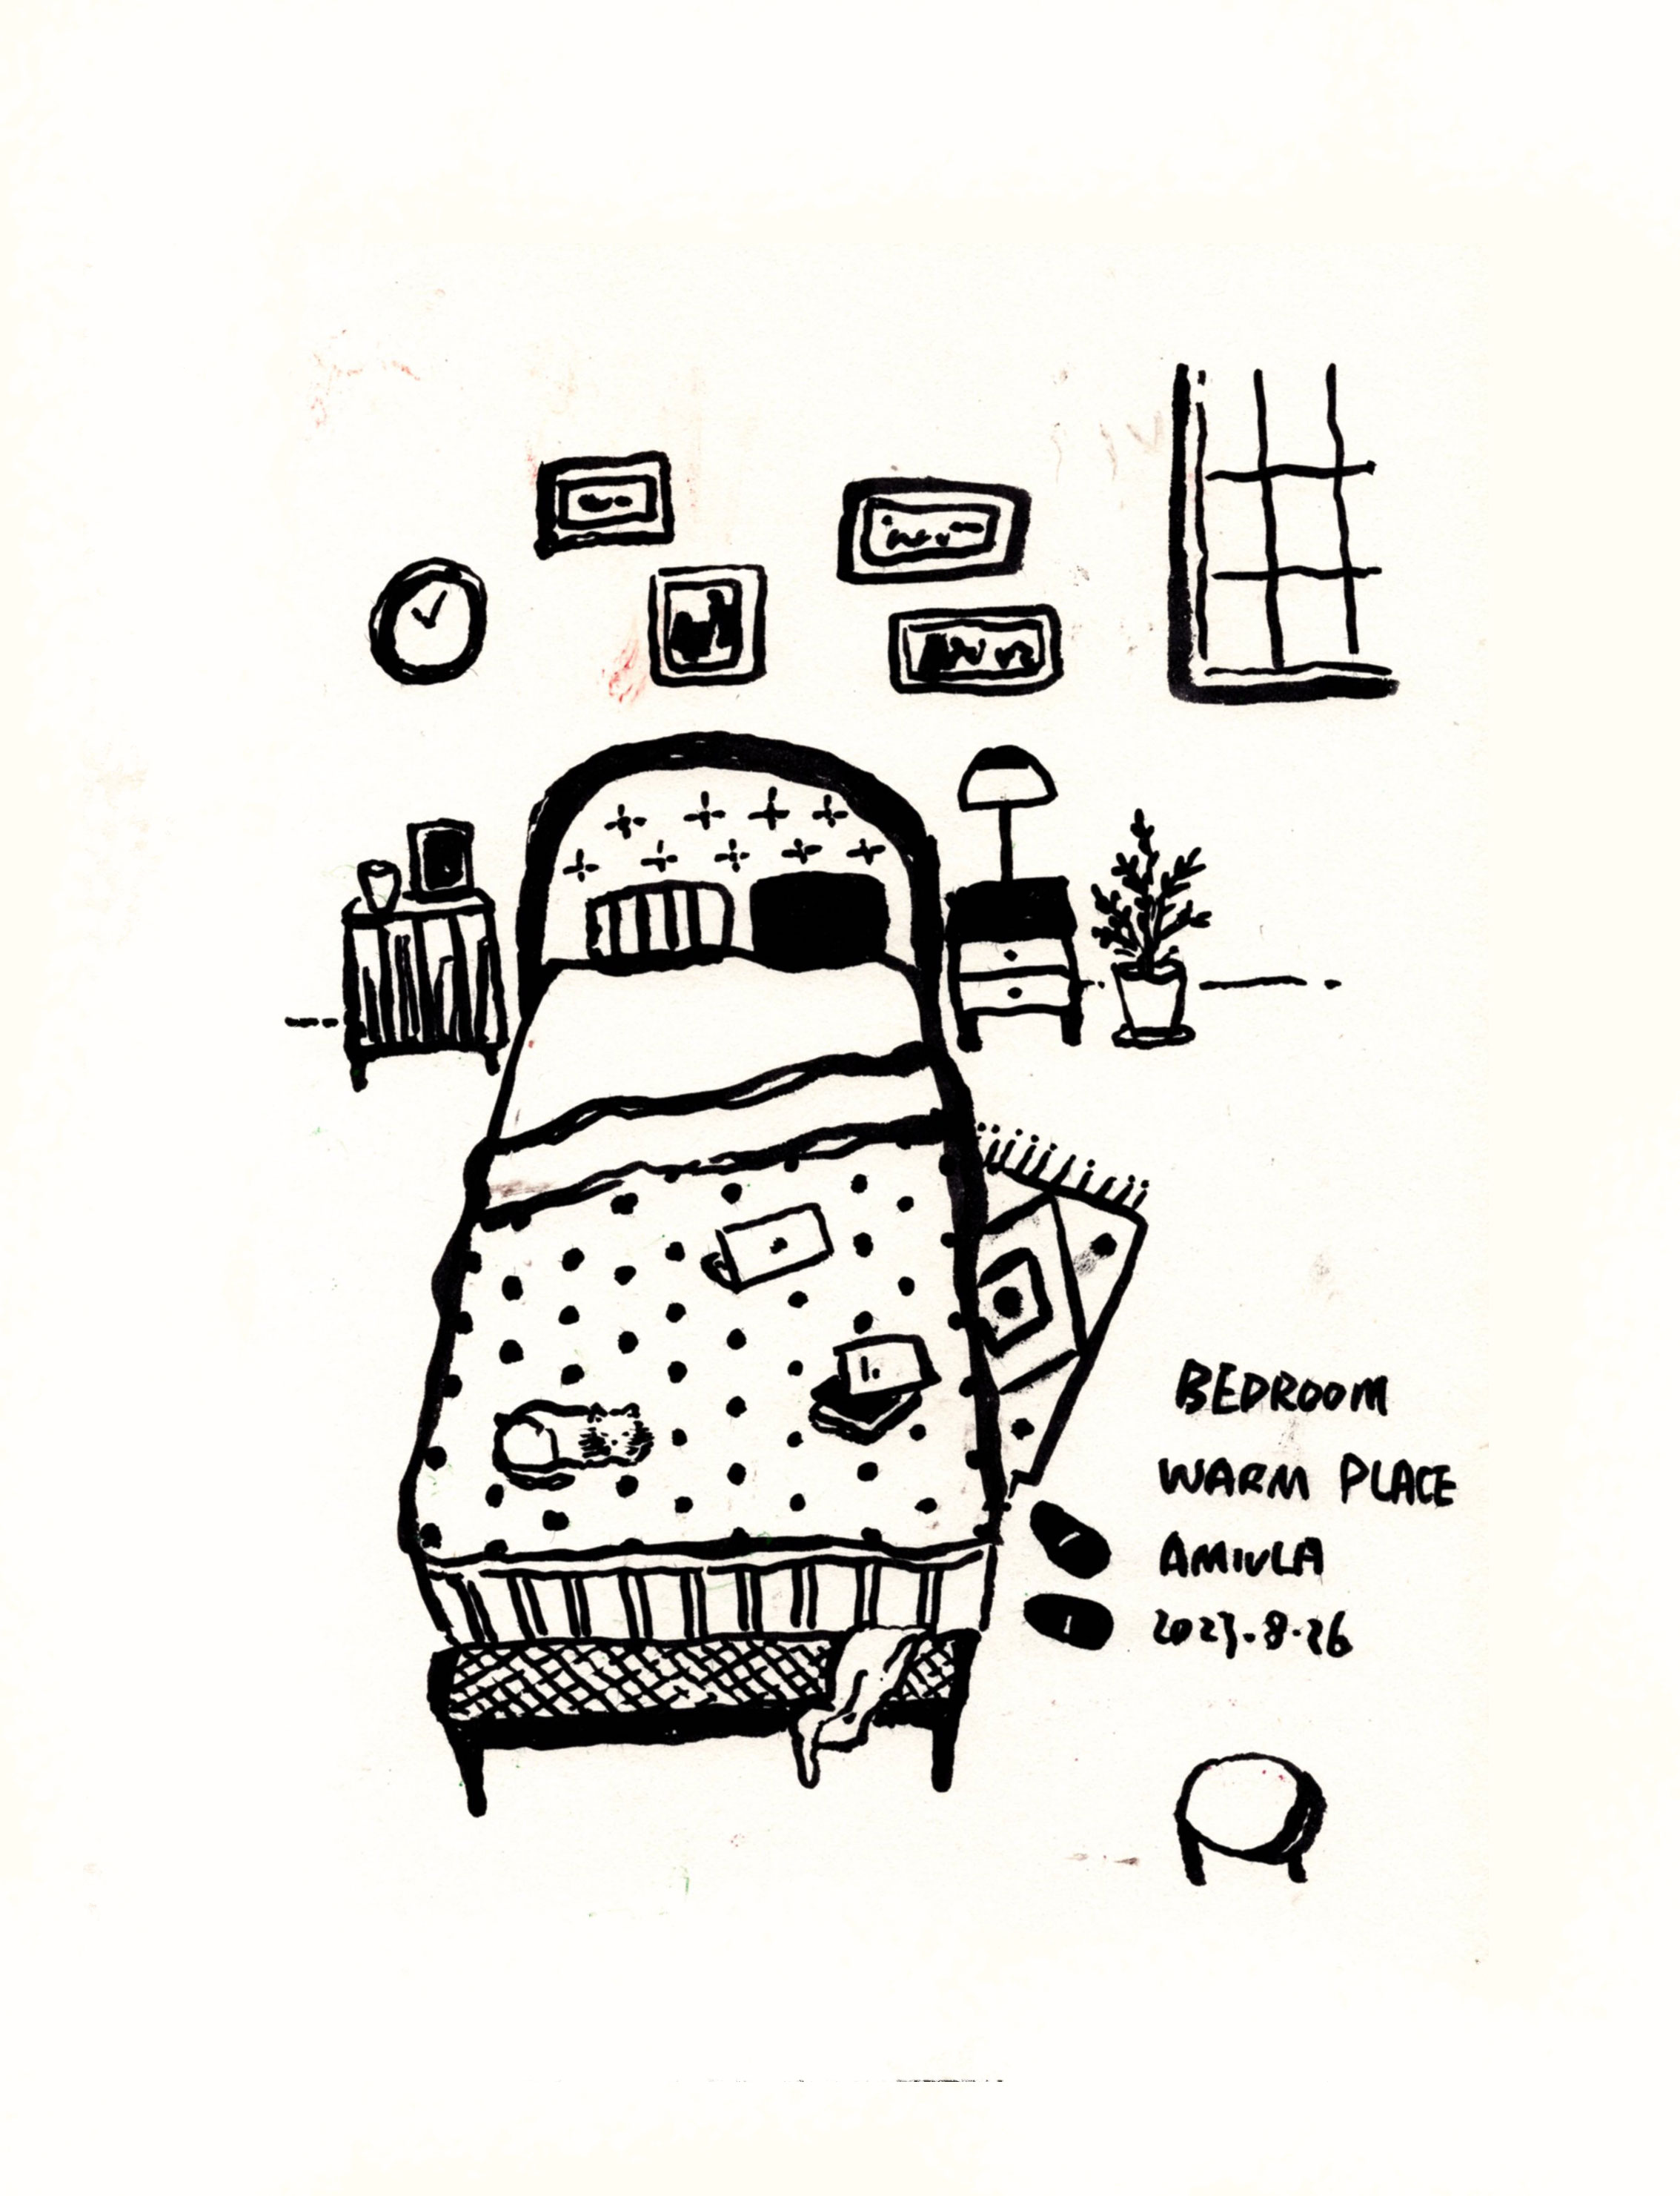 BEDROOM
WARM PLACE
AMIULA
2023.8.26